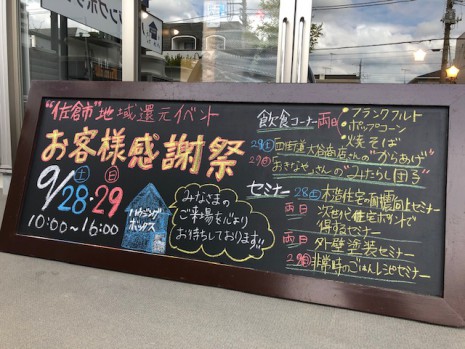 "佐倉市"地域還元イベント
お客様感謝祭
9/28㊏・29㊐
10:00〜16:00
ハウジングボックス
みなさまの
ご来場を心より
お待ちしております!!
飲食コーナー 両日
・フランクフルト
・ポップコーン
・火焼そば
28㊏ 四街道 大谷商店さんの"からあげ"
29㊐ おきなやさんの"みたらし団子"
セミナー
28㊏ 木造住宅の耐震向上セミナー
両日 次世代住宅ポイントで
得するセミナー
両日 外壁塗装セミナー
29㊐ 非常時のごはんレシピセミナー